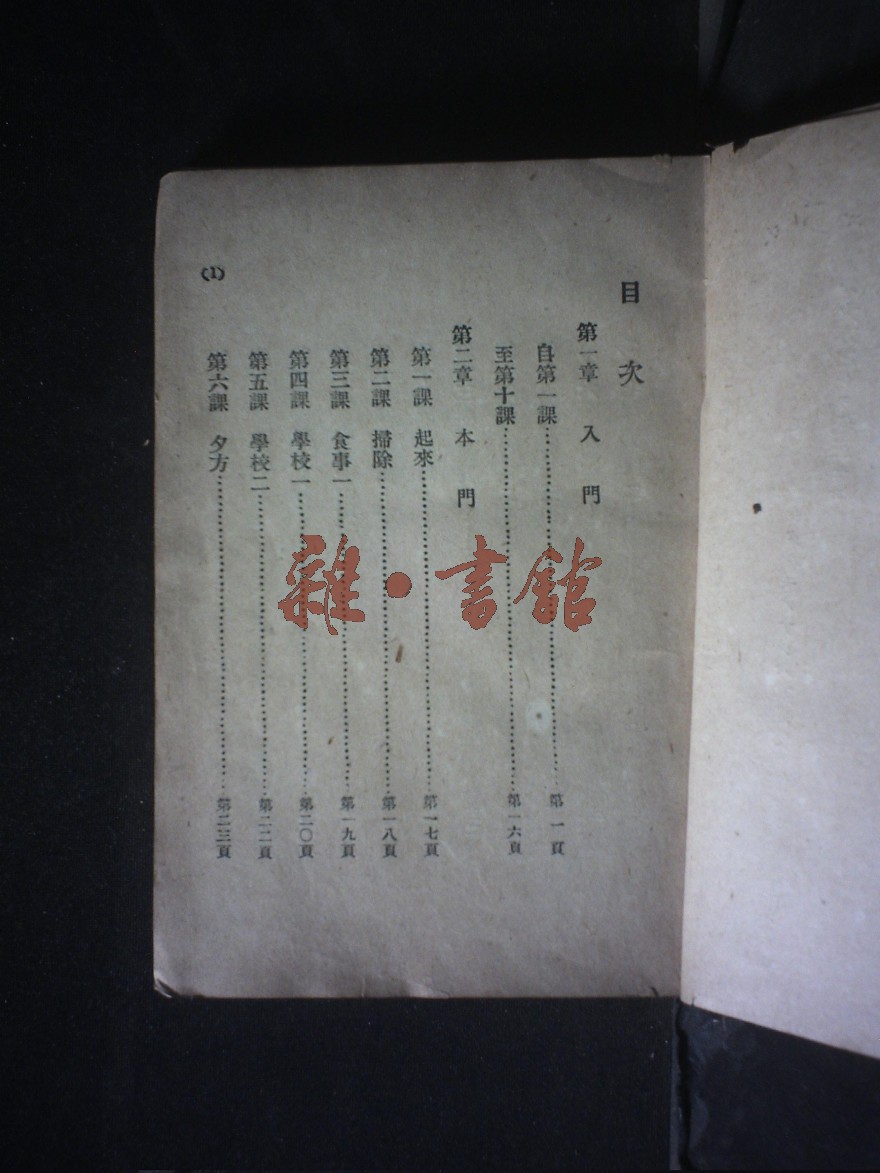 目次
第一章 入門
自第一課……第一頁
至第十課……第一六頁
第二章 本門
第一課 起來……第一七頁
第二課 掃除……第一八頁
第三課 食事一……第一九頁
第四課 學校一……第二〇頁
第五課 學校二……第二二頁
第六課 夕方……第二三頁
(1)
雜·書館